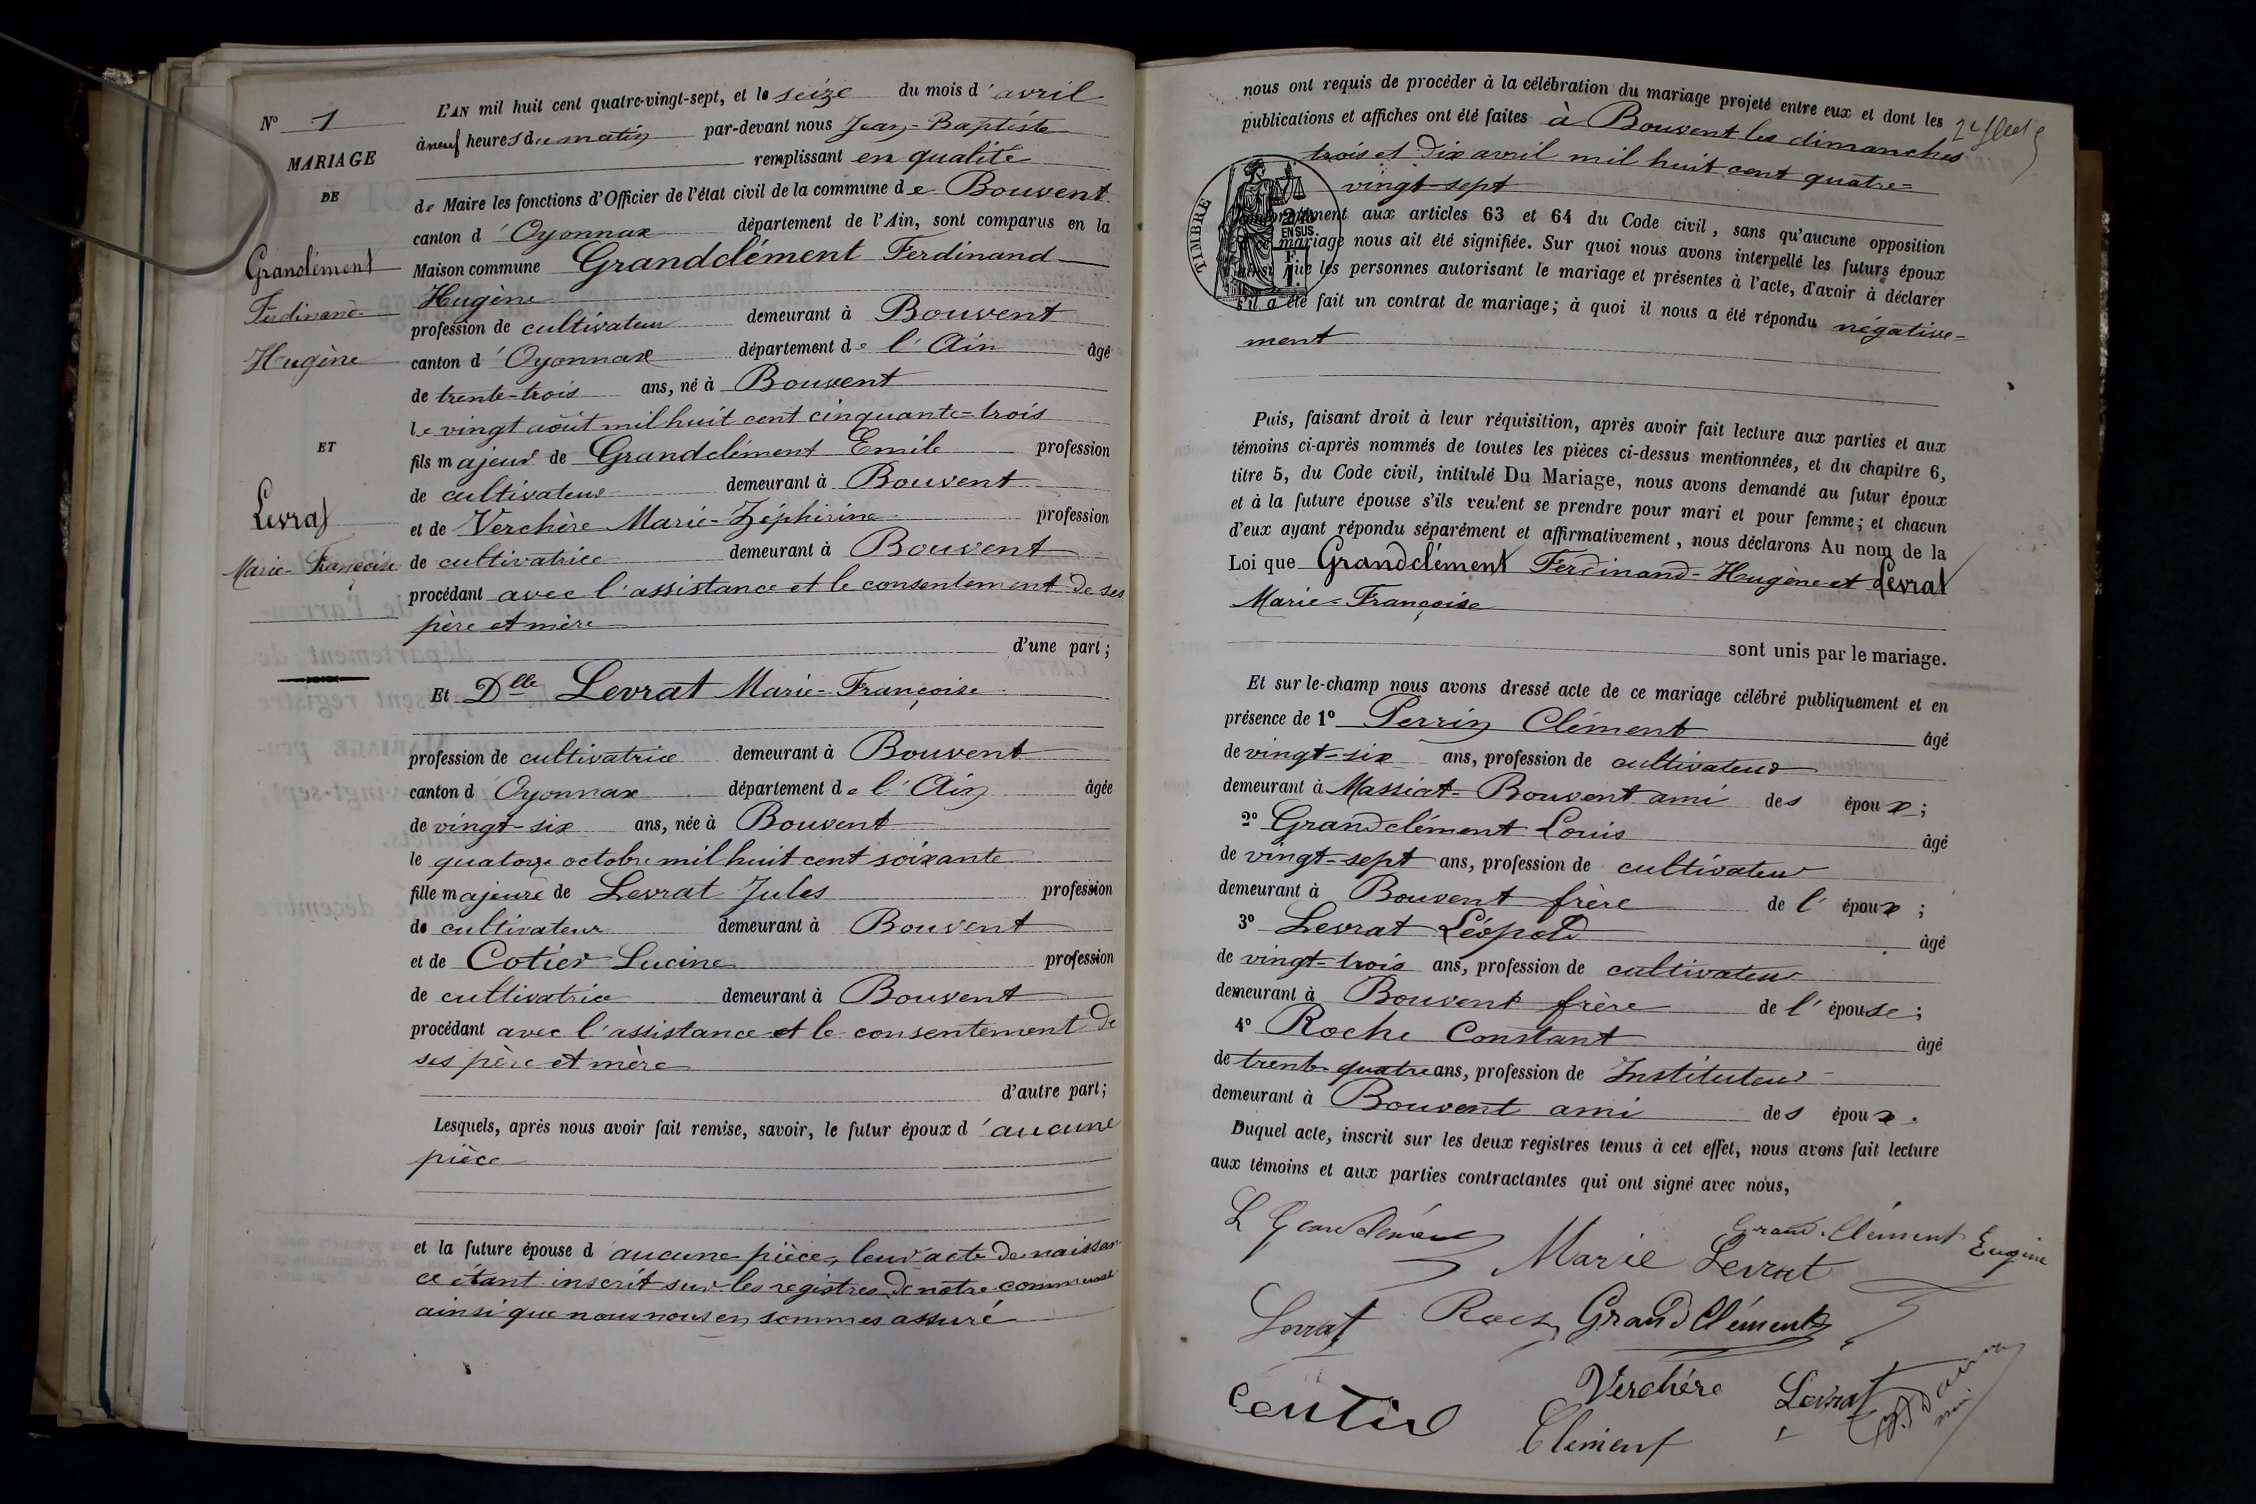 N° 1
MARIAGE
DE
Granclément
Ferdinand
Hugène
ET
Levrat
Marie-Françoise
L'AN mil huit cent quatre-vingt-sept, et le seize du mois d'avril
à neuf heures du matin par-devant nous Jean-Baptiste
remplissant en qualité
de Maire les fonctions d'Officier de l'état civil de la commune de Bouvent
canton d'Oyonnax département de l'Ain, sont comparus en la
Maison commune Grandclément Ferdinand
Hugène
profession de cultivateur demeurant à Bouvent
canton d'Oyonnax département de l'Ain âgé
de trente-trois ans, né à Bouvent
le vingt août mil huit cent cinquante=trois
fils majeur de Grandclément Emile profession
de cultivateur demeurant à Bouvent
et de Verchère Marie-Zéphirine profession
de cultivatrice demeurant à Bouvent
procédant avec l'assistance et le consentement de ses
père et mère
d'une part;
Et Dlle Levrat Marie-Françoise
profession de cultivatrice demeurant à Bouvent
canton d'Oyonnax département de l'Ain âgée
de vingt-six ans, née à Bouvent
le quatorze octobre mil huit cent soixante
fille majeure de Levrat Jules profession
de cultivateur demeurant à Bouvent
et de Cotier Lucine profession
de cultivatrice demeurant à Bouvent
procédant avec l'assistance et le consentement de
ses père et mère
d'autre part;
Lesquels, après nous avoir fait remise, savoir, le futur époux d'aucune
pièce
et la future épouse d'aucune pièce, leur acte de naissan
ce étant inscrit sur les registres de notre commune
ainsi que nous nous en sommes assuré
nous ont requis de procéder à la célébration du mariage projeté entre eux et dont les
publications et affiches ont été faites à Bouvent les dimanches
trois et dix avril mil huit cent quatre=
vingt-sept
TIMBRE
2/10
EN SUS
F.
1.
conformément aux articles 63 et 64 du Code civil, sans qu'aucune opposition
mariage nous ait été signifiée. Sur quoi nous avons interpellé les futurs époux
ainsi que les personnes autorisant le mariage et présentes à l'acte, d'avoir à déclarer
s'il a été fait un contrat de mariage; à quoi il nous a été répondu négative=
ment
Puis, faisant droit à leur réquisition, après avoir fait lecture aux parties et aux
témoins ci-après nommés de toutes les pièces ci-dessus mentionnées, et du chapitre 6,
titre 5, du Code civil, intitulé Du Mariage, nous avons demandé au futur époux
et à la future épouse s'ils veulent se prendre pour mari et pour femme; et chacun
d'eux ayant répondu séparément et affirmativement, nous déclarons Au nom de la
Loi que Grandclément Ferdinand-Hugène et Levrat
Marie-Françoise
sont unis par le mariage.
Et sur-le-champ nous avons dressé acte de ce mariage célébré publiquement et en
présence de 1° Perrin Clément âgé
de vingt-six ans, profession de cultivateur
demeurant à Massiat-Bouvent ami des époux;
2° Grandclément Louis âgé
de vingt-sept ans, profession de cultivateur
demeurant à Bouvent frère de l'époux;
3° Levrat Léopold âgé
de vingt-trois ans, profession de cultivateur
demeurant à Bouvent frère de l'épouse;
4° Roche Constant âgé
de trente quatre ans, profession de Instituteur
demeurant à Bouvent ami des époux.
Duquel acte, inscrit sur les deux registres tenus à cet effet, nous avons fait lecture
aux témoins et aux parties contractantes qui ont signé avec nous,
L Grandclément
Grand-Clément Eugène
Marie Levrat
Levrat
GrandClément
Verchère
Levrat
Clément